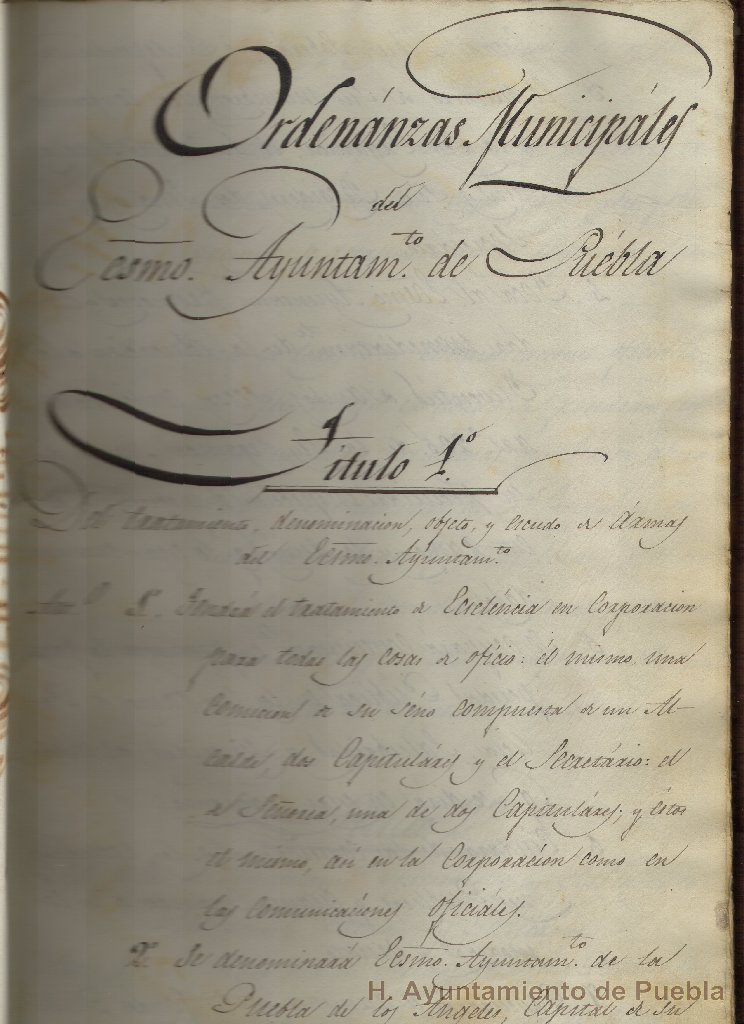 Ordenánzas Municipáles
del
Ecsmo. Ayuntam.to de Puébla
Titulo 1.º
Del tratamiento, denominacion, objeto, y escudo de ármas
del Ecsmo. Ayuntam.to
Art.º 1.º Tendrá el tratamiento de Eccelencia en Corporacion
para todas las cosas de oficio: él mismo una
Comicion de su séno compuesta de un Al-
calde, dos Capituláres y el Secretário: el
de Señoría, una de dos Capituláres; y éstos
el mismo, asi en la Corporacion como en
las comunicaciones oficiáles.
2.º Se denominará Ecsmo. Ayuntam.to de la
Puebla de los Angeles, Capital de su
H. Ayuntamiento de Puebla